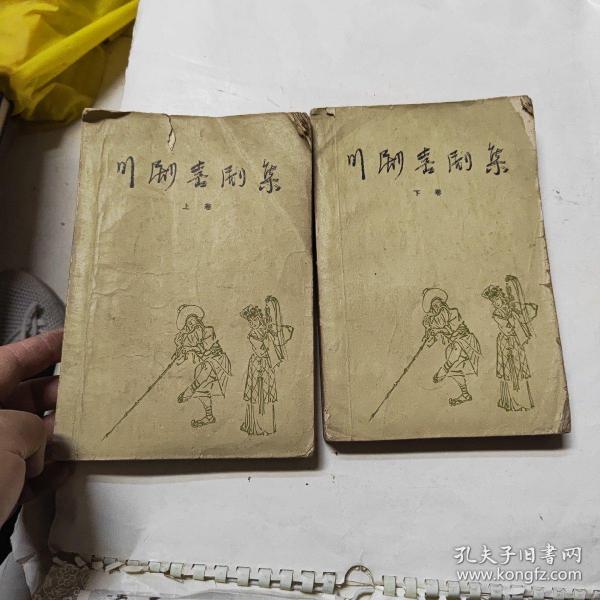 川剧喜剧集
上卷
川剧喜剧集
下卷
孔夫子旧书网
www.kongfz.com